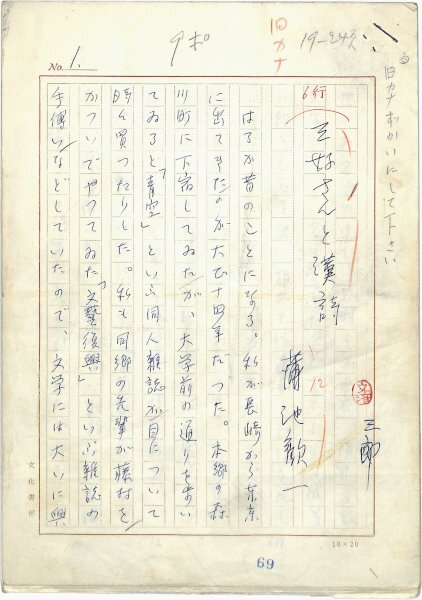 旧カナずかいにして下さい
旧カナ
9ポ
No. 1.
6行
三好さんと漢詩
12
蒲池歓一
三郎
はるか昔のことになる。私が長崎から東京
に出てきたのが大正十四年だった。本郷の森
川町に下宿してゐたが、大学前の通りを歩い
てゐると「青空」といふ同人雑誌が目について
時々買つたりした。私も同郷の先輩が藤村を
かついでやつてゐた「文藝復興」といふ雑誌の
手傳ひなどしていたので、文学には大いに興
10×20
69